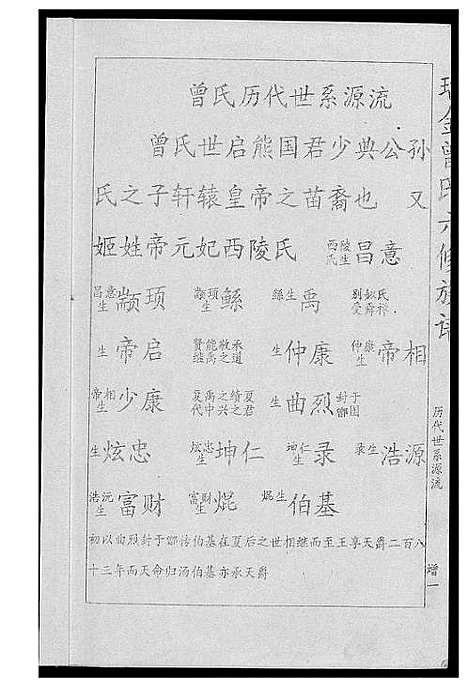 曾氏历代世系源流
曾氏世启熊国君少典公孙
氏之子轩辕皇帝之苗裔也 又
姬姓帝元妃西陵氏 西陵氏生 昌意
昌意生 颛顼 颛顼生 鲧 鲧生 禹
生 帝启 贤能敬承继禹之道 生 仲康 仲康生 帝相
帝相生 少康 夏禹之绩夏代中兴之君 生 曲烈 封于鄫国
生 炫忠 炫忠生 坤仁 坤仁生 录 录生 浩源
生 富财 富财生 焜 焜生 伯基
初以曲烈封于鄫传伯基在夏后之世相继而至王享天爵二百八
十三年而天命归汤伯基亦承天爵
金曾氏六修族谱
历代世系源流
增一